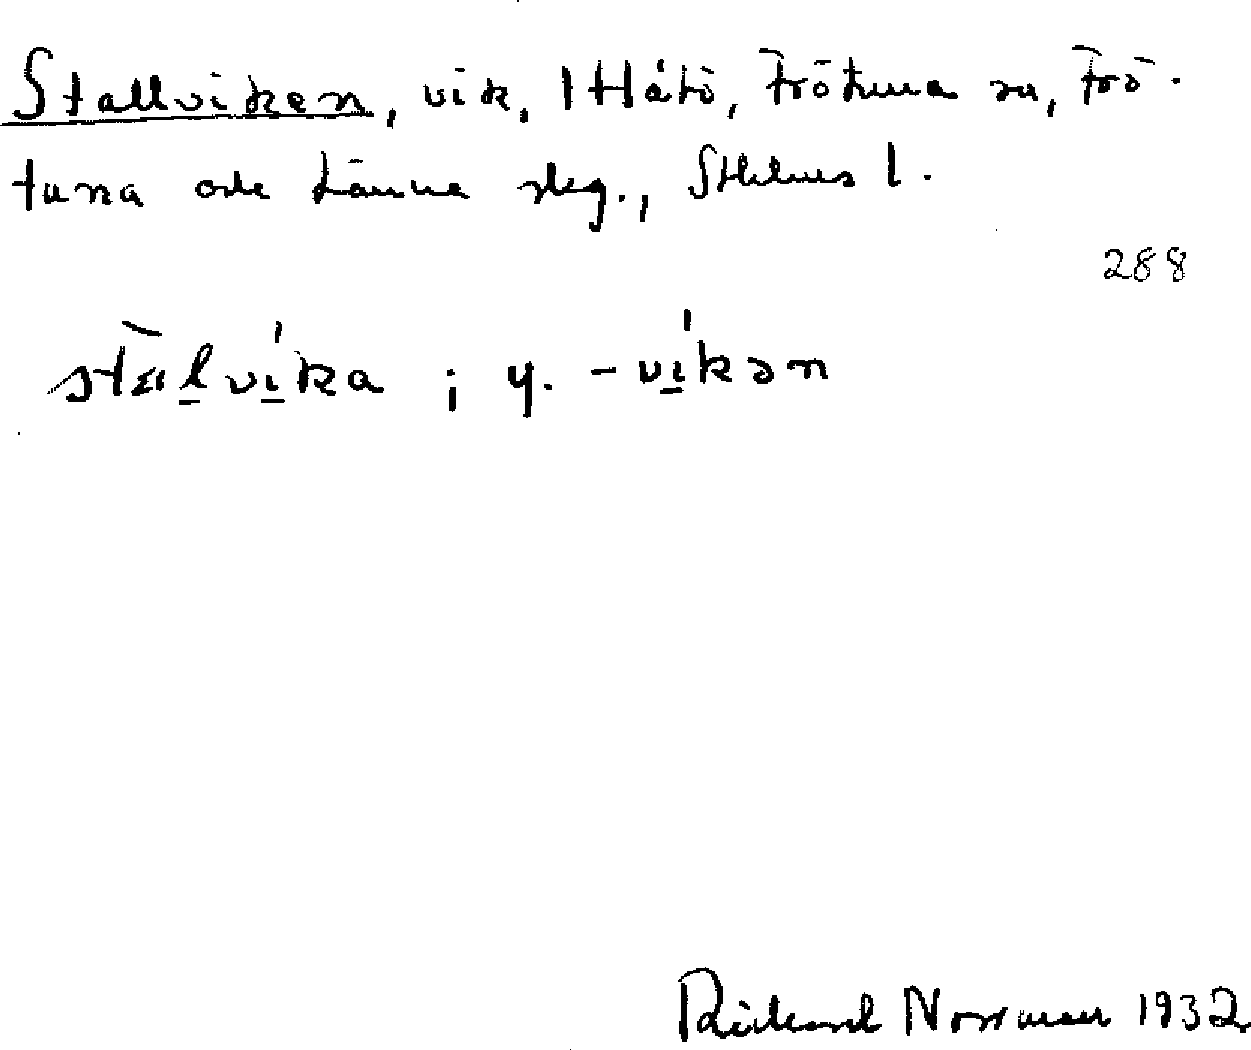 Stallviken, vik, Håtö, Frötuna sn, Frö-
tuna och Länna skg., Sthlms l.
288
stal̠vi̠ka ; y. -vi̠kən
Rickard Norrman 1932